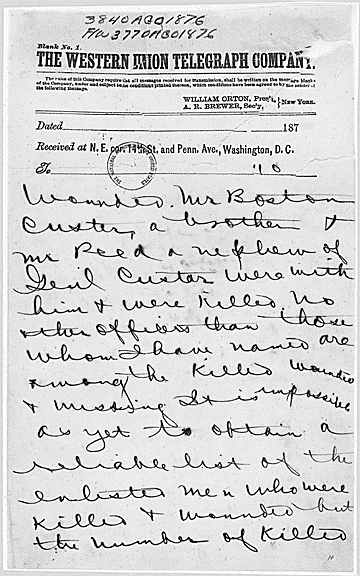 3840 AGO 1876
F/W 3770 AGO 1876
Blank No. 1.
THE WESTERN UNION TELEGRAPH COMPANY.
The rules of this Company require that all messages received for transmission, shall be written on the message blanks
of the Company, under and subject to the conditions printed thereon, which conditions have been agreed to by the sender of
the following message.
WILLIAM ORTON, Pres't,
A. R. BREWER, Sec'y,
New York.
Dated 187
Received at N. E. cor. 14th St. and Penn. Ave., Washington, D. C.
To
Wounded. Mr Boston
Custer, a brother &
Mr Reed a nephew of
Genl Custar were with
him & were Killed. No
other officers than those
whom I have named are
among the Killed wounded
& missing It is impossible
as yet to obtain a
reliable list of the
enlisted men who were
Killed & wounded but
the number of Killed